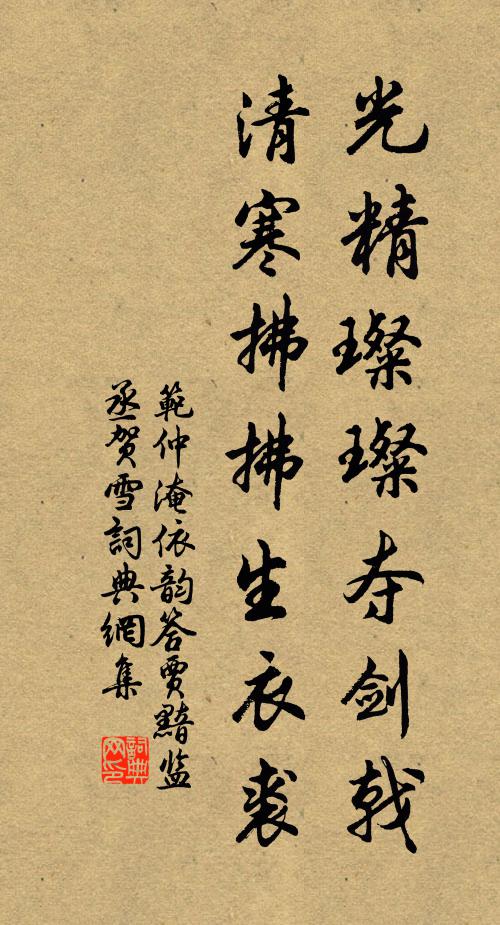 光精璨璨夺剑戟
清寒拂拂生衣裘
範仲淹依韵答賈黯监
丞贺雪詞典網集
詞典网印